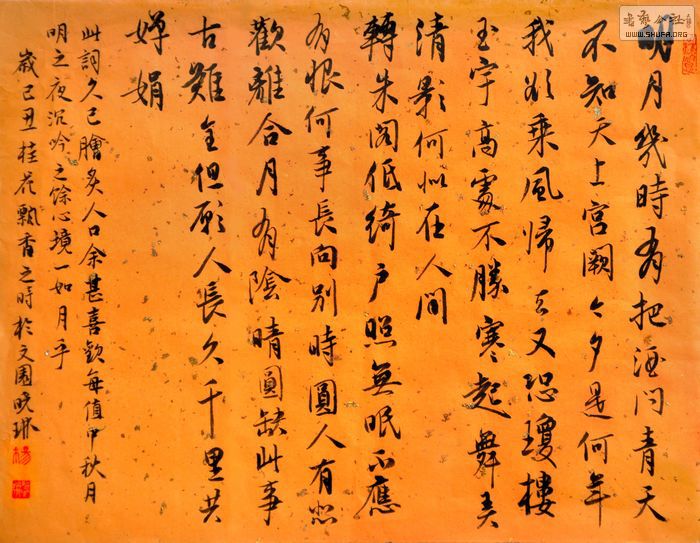 明月幾時有把酒问青天
不知天上宮闕今夕是何年
我欲乘風歸去又恐瓊樓
玉宇高處不勝寒起舞弄
清影何似在人間
轉朱閣低綺户照無眠不應
有恨何事長向别時圓人有悲
歡離合月有陰晴圓缺此事
古難全但願人長久千里共
嬋娟
此詞久已膾炙人口余甚喜歡每值中秋月
明之夜沉吟之餘心境一如月乎
歲己丑桂花飄香之時於文園晚琳
WWW.SHUFA.ORG